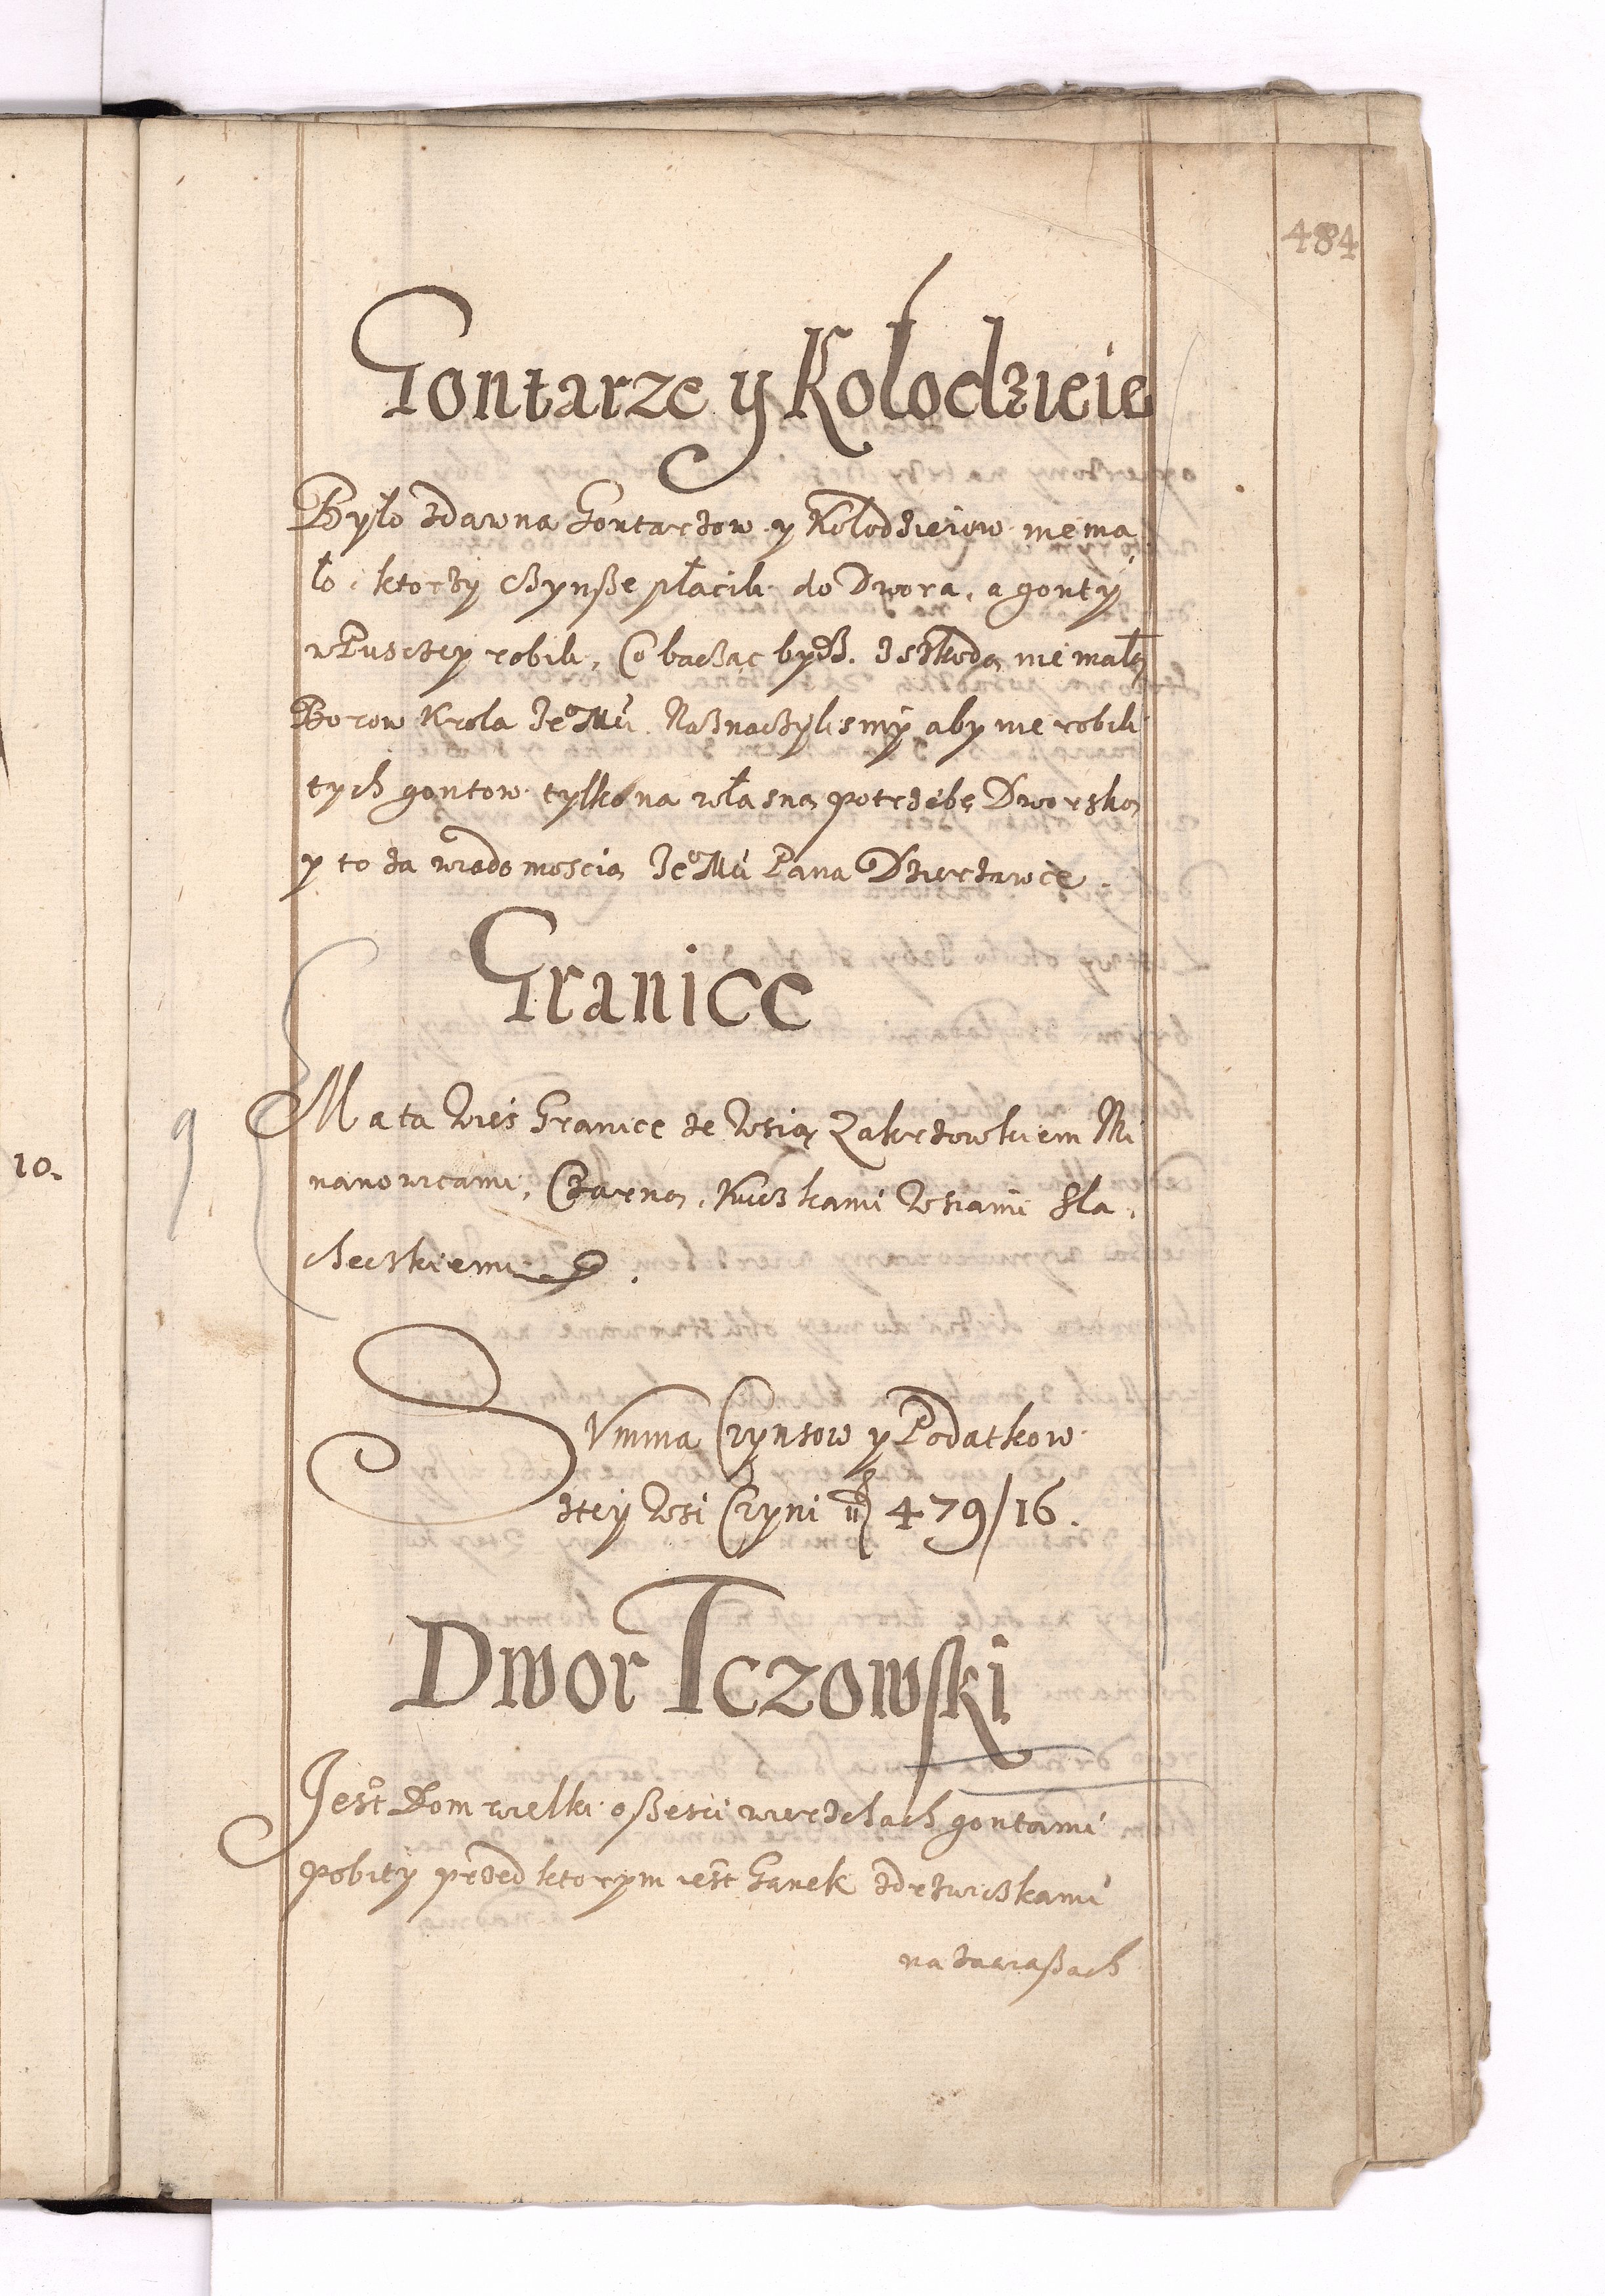 484
Gontarze y Kołodzieie
Było zdawna Gontarzow y Kołodzieiow niema
ło, ktorzy Czynße płacili do Dwora, a gonty
w Pusczey robili, Co bacząc bydź z szkodą nie małą
Borow Krola Je⁰ Mći. Naznaczylismy aby nie robili
tych gontow tylko na własną potrzebę Dworską
y to za wiadomoscią Je⁰ Mći Pana Dzierzawcę.
Granice
9
Ma ta Wieś Granice ze Wsią Zakrzowkiem Mi
10.
nanowicami, Czarną, Kuczkami Wsiami Sla,
checzkiemi.
Summa Czynsow y Podatkow
ztey Wsi Czyni 479/16.
Dwor Tczowski
Jest Dom wielki o ßesci wierzchach gontami
pobity przed ktorym iest Ganek zdrzwiczkami
na zawiaßach